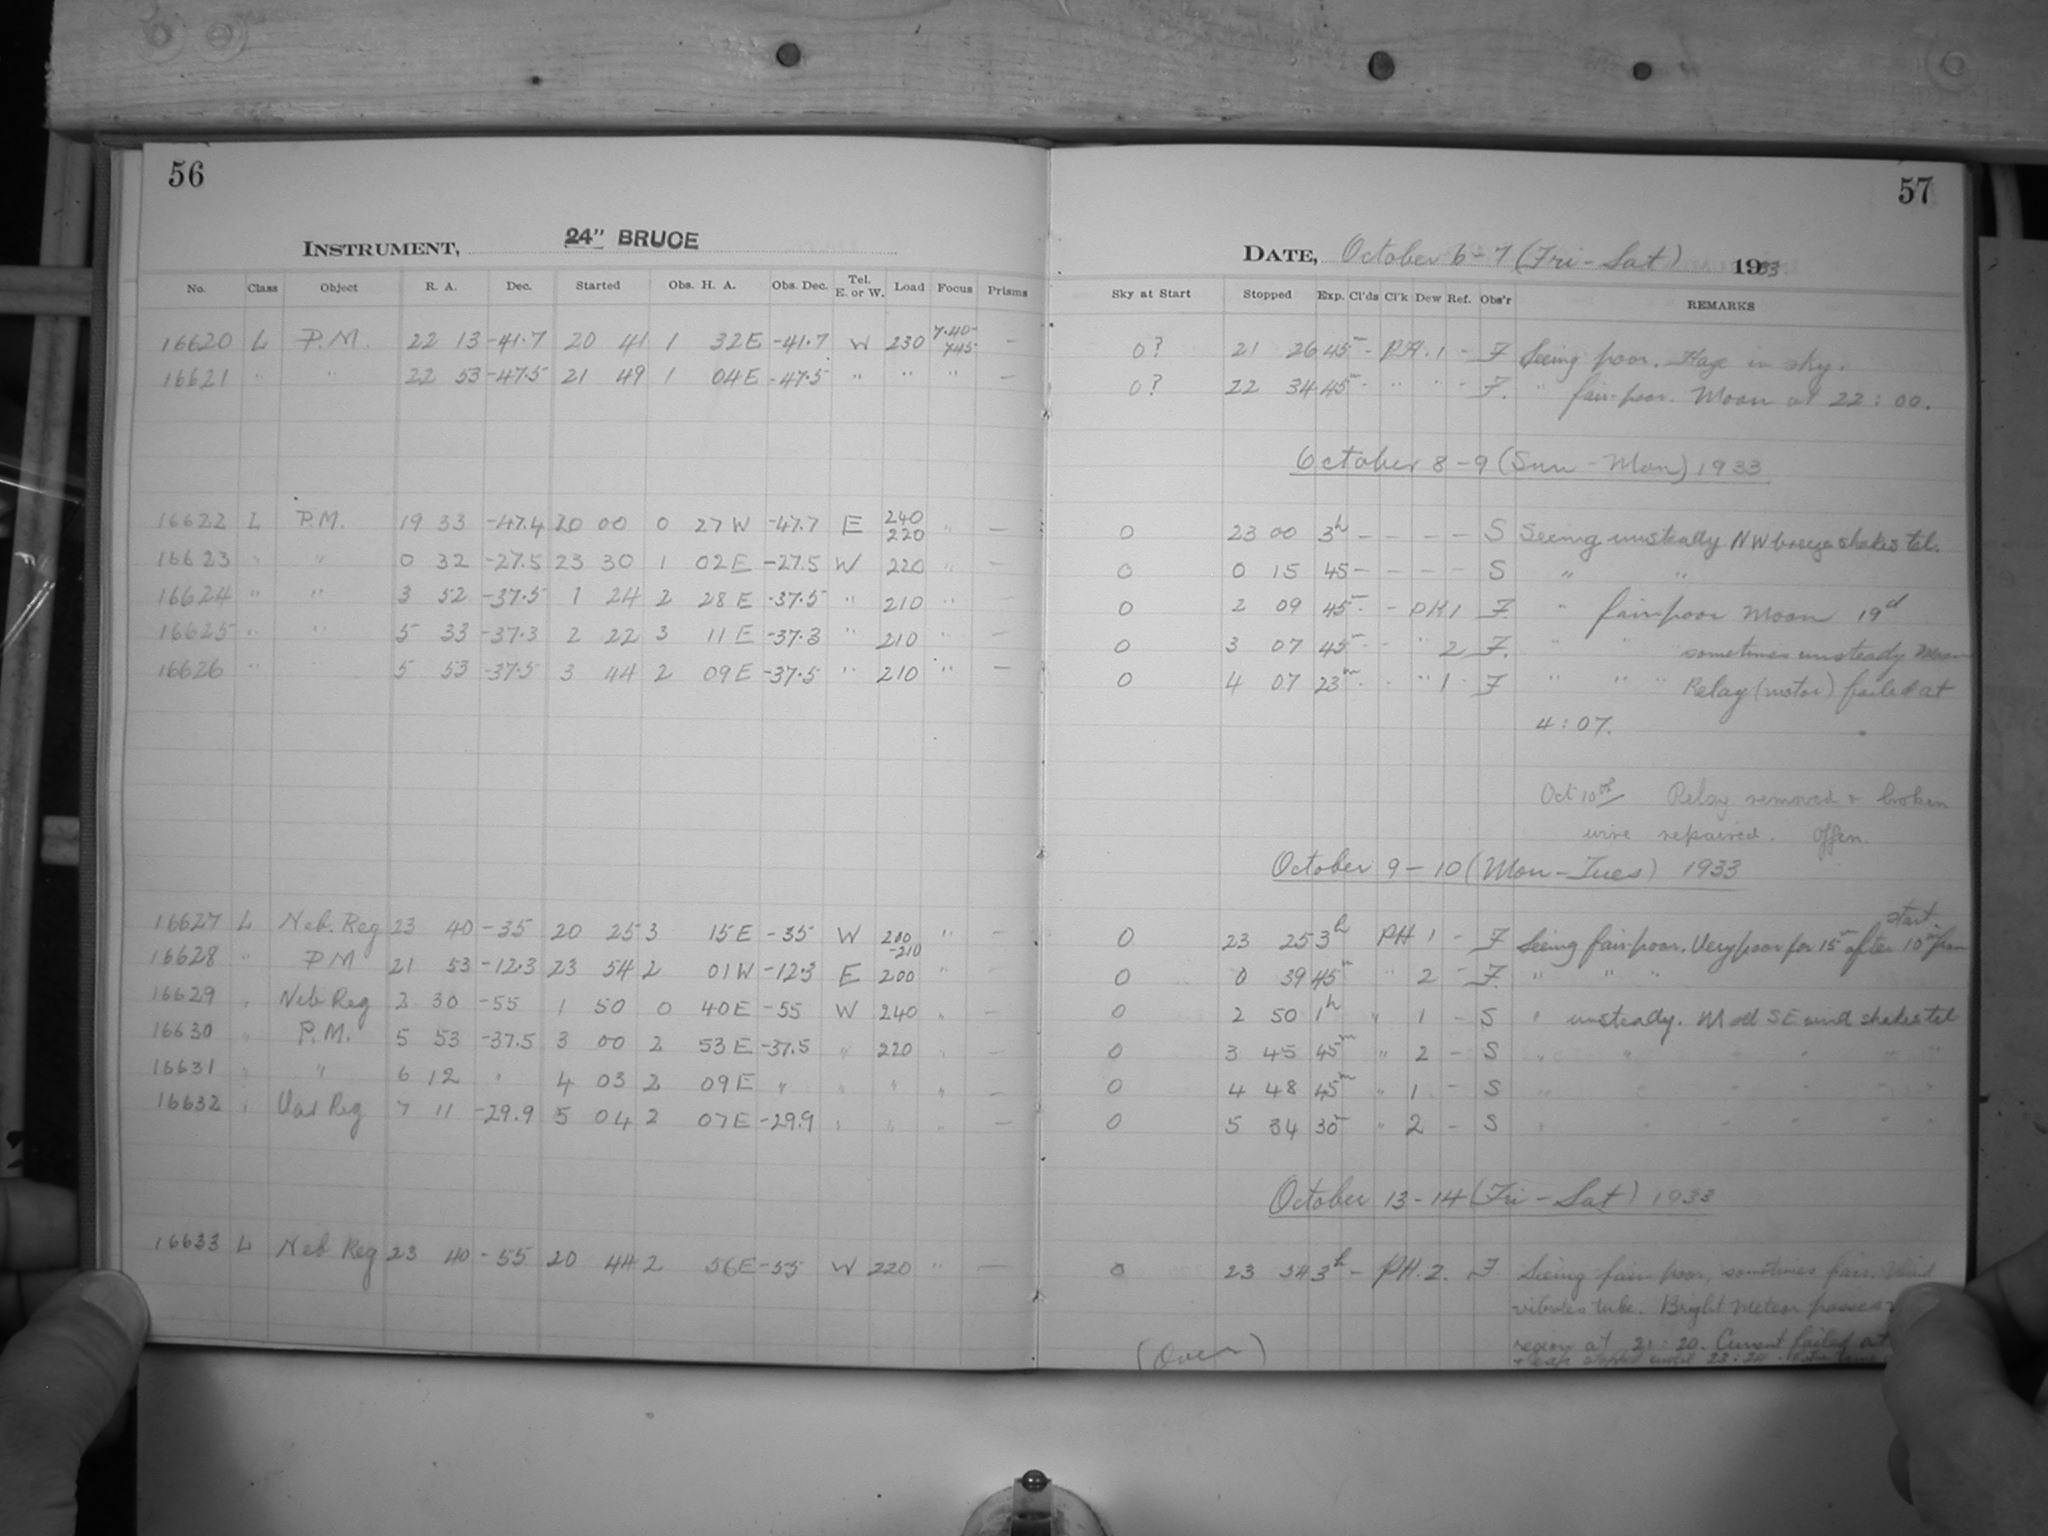 56
INSTRUMENT, 24" BRUCE
No. Class Object R. A. Dec. Started Obs. H. A. Obs. Dec. Tel. E. or W. Load Focus Prisms
16620 L P.M. 22 13 -41.7 20 41 1 32E -41.7 W 230 7.40- 745 —
16621 " " 22 53 -47.5 21 49 1 04E -47.5 " " " —
16622 L P.M. 19 33 -47.4 20 00 0 27W -47.7 E 240 220 " —
16623 " " 0 32 -27.5 23 30 1 02E -27.5 W 220 " —
16624 " " 3 52 -37.5 1 24 2 28E -37.5 " 210 " —
16625 " " 5 33 -37.3 2 22 3 11E -37.3 " 210 " —
16626 " 5 53 -37.5 3 44 2 09E -37.5 " 210 " —
16627 L Neb. Reg 23 40 -35 20 25 3 15E -35 W 200 -210 " —
16628 " PM 21 53 -12.3 23 54 2 01W -12.3 E 200 "
16629 " Neb Reg 2 30 -55 1 50 0 40E -55 W 240 " —
16630 " P.M. 5 53 -37.5 3 00 2 53E -37.5 " 220 " —
16631 " " 6 12 " 4 03 2 09E " " " " —
16632 " Var Reg 7 11 -29.9 5 04 2 07E -29.9 " " " —
16633 L Neb Reg 23 40 -55 20 44 2 56E -55 W 220 " —
57
DATE, October 6-7 (Fri-Sat) 1933
Sky at Start Stopped Exp. Cl'ds Cl'k Dew Ref. Obs'r REMARKS
0? 21 26 45m - PH. 1 - F Seeing poor. Haze in sky.
0? 22 34 45m - " " - F. " fair-poor. Moon at 22:00.
October 8-9 (Sun-Mon) 1933
0 23 00 3h - - - - S Seeing unsteady NW breeze shakes tel.
0 0 15 45 - - - - S " "
0 2 09 45m - PH 1 F. " fair-poor Moon 19d
0 3 07 45m - " 2 F. " " sometimes unsteady Moon
0 4 07 23m - " 1 F " " " Relay (motor) failed at
4:07.
Oct 10th Relay removed & broken
wire repaired.
October 9-10 (Mon-Tues) 1933
start
0 23 25 3h PH 1 - F Seeing fair-poor. Very poor for 15m after 10m from
0 0 39 45m " 2 - F. " " "
0 2 50 1h " 1 - S " unsteady. Mod SE wind shakes tel
0 3 45 45m " 2 - S " " " " " "
0 4 48 45m " 1 - S " " " " "
0 5 34 30m " 2 - S " " " " "
October 13-14 (Fri-Sat) 1933
0 23 54 3h - PH. 2. F Seeing fair-poor, sometimes fair. Wind
vibrates tube. Bright Meteor passes
region at 21:20. Current failed at
(Over)